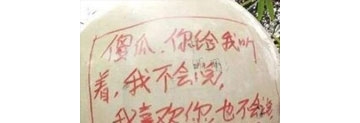 傻瓜,你给我听
着,我不会浇,
我喜欢你,也不会